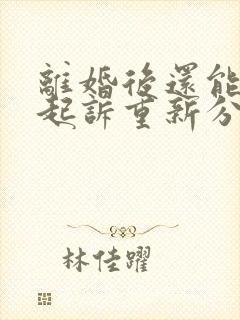 離婚後還能
起訴重新分
林佳躍